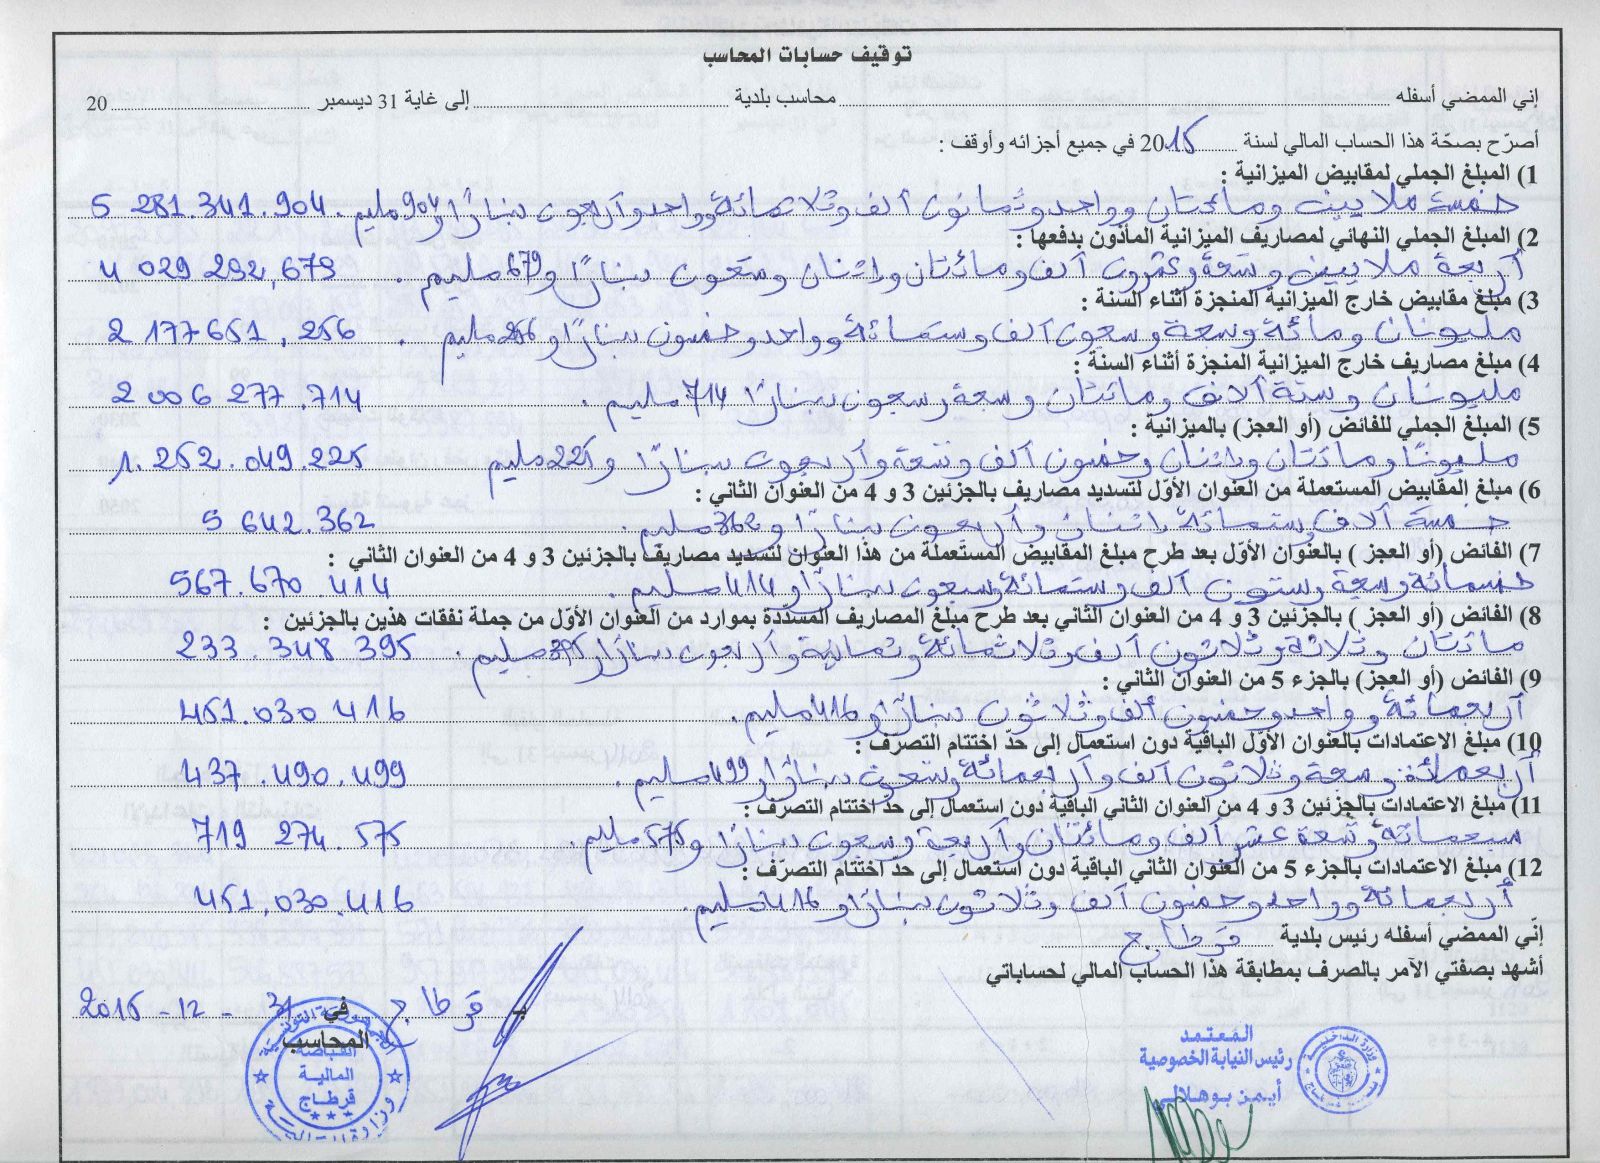 توقيف حسابات المحاسب
إني الممضي أسفله محاسب بلدية إلى غاية 31 ديسمبر 20
أصرّح بصحّة هذا الحساب المالي لسنة 2015 في جميع أجزائه وأوقف :
1) المبلغ الجملي لمقابيض الميزانية :
خمسة ملايين ومائتان وواحد وثمانون ألف وثلاثمائة وواحد وأربعون دينارًا و904 مليم. 5 281.341.904
2) المبلغ الجملي النهائي لمصاريف الميزانية المأذون بدفعها :
أربعة ملايين وتسعة وعشرون ألف ومائتان واثنان وتسعون دينارًا و679 مليم. 4 029 292,679
3) مبلغ مقابيض خارج الميزانية المنجزة أثناء السنة :
مليونان ومائة وسبعة وسبعون ألف وستمائة وواحد وخمسون دينارًا و256 مليم. 2 177 651,256
4) مبلغ مصاريف خارج الميزانية المنجزة أثناء السنة :
مليونان وستة آلاف ومائتان وسبعة وسبعون دينارًا 714 مليم. 2 006 277.714
5) المبلغ الجملي للفائض (أو العجز) بالميزانية :
مليونًا ومائتان واثنان وخمسون ألف وتسعة وأربعون دينارًا و225 مليم 1.252.049.225
6) مبلغ المقابيض المستعملة من العنوان الأوّل لتسديد مصاريف بالجزئين 3 و 4 من العنوان الثاني :
خمسة آلاف وستمائة واثنان وأربعون دينارًا و362 مليم. 5 642.362
7) الفائض (أو العجز ) بالعنوان الأوّل بعد طرح مبلغ المقابيض المستعملة من هذا العنوان لتسديد مصاريف بالجزئين 3 و 4 من العنوان الثاني :
خمسمائة وسبعة وستون ألف وستمائة وسبعون دينارًا و414 مليم. 567.670.414
8) الفائض (أو العجز ) بالجزئين 3 و 4 من العنوان الثاني بعد طرح مبلغ المصاريف المسدّدة بموارد من العنوان الأوّل من جملة نفقات هذين بالجزئين :
مائتان وثلاثة وثلاثون ألف وثلاثمائة وثمانية وأربعون دينارًا و395 مليم. 233.348 395
9) الفائض (أو العجز) بالجزء 5 من العنوان الثاني :
أربعمائة وواحد وخمسون ألف وثلاثون دينارًا و416 مليم. 451.030 416
10) مبلغ الاعتمادات بالعنوان الأوّل الباقية دون استعمال إلى حدّ اختتام التصرف :
أربعمائة وسبعة وثلاثون ألف وأربعمائة وتسعون دينارًا و499 مليم. 437.490.499
11) مبلغ الاعتمادات بالجزئين 3 و 4 من العنوان الثاني الباقية دون استعمال إلى حدّ اختتام التصرف :
سبعمائة وتسعة عشر ألف ومائتان وأربعة وسبعون دينارًا و575 مليم. 719 274.575
12) مبلغ الاعتمادات بالجزء 5 من العنوان الثاني الباقية دون استعمال إلى حدّ اختتام التصرف :
أربعمائة وواحد وخمسون ألف وثلاثون دينارًا و416 مليم. 451,030.416
إنّي الممضي أسفله رئيس بلدية قرطاج
أشهد بصفتي الآمر بالصرف بمطابقة هذا الحساب المالي لحساباتي
بـ قرطاج في 31 - 12 - 2015
المحاسب
الجمهورية التونسية
القباضة
المالية
قرطاج
وزارة المالية
المعتمد
رئيس النيابة الخصوصية
أيمن بوهلالي
وزارة الداخلية